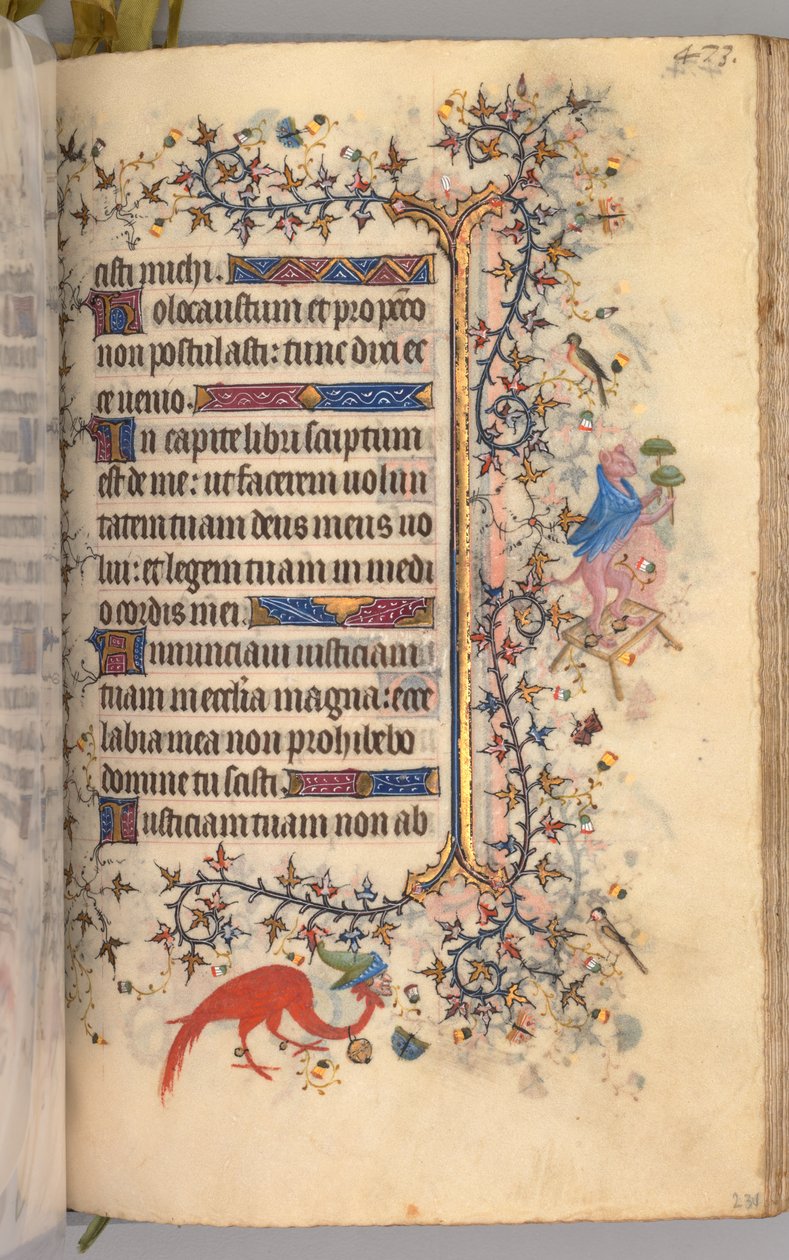 423.
cisti michi.
Holocaustum et pro pc̄co
non postulasti: tunc dixi ec
ce uenio.
In capite libri scriptum
est de me: ut facerem uolun
tatem tuam deus meus uo
lui: et legem tuam in medi
o cordis mei.
Annunciaui iusticiam
tuam in eccl̄ia magna: ecce
labia mea non prohibebo
domine tu scisti.
Iusticiam tuam non ab